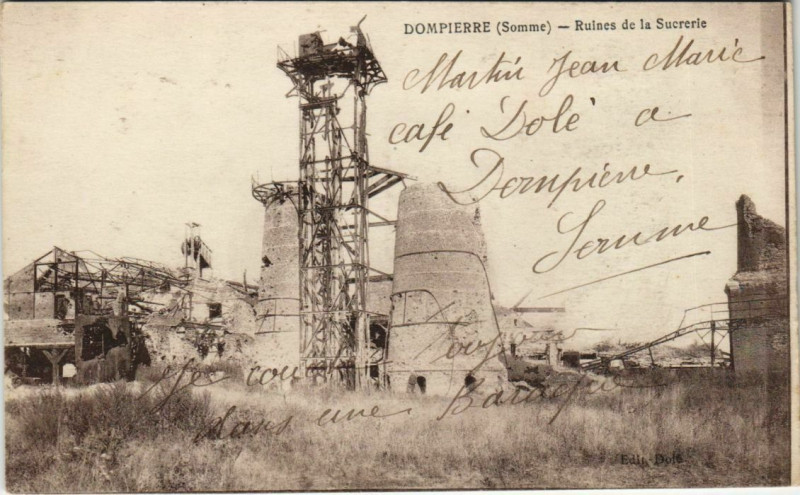 DOMPIERRE (Somme) — Ruines de la Sucrerie
Martin Jean Marie
café Dolé a
Dompierre,
Somme
Je couche Toujours
dans une Baraque
Edit. Dolé